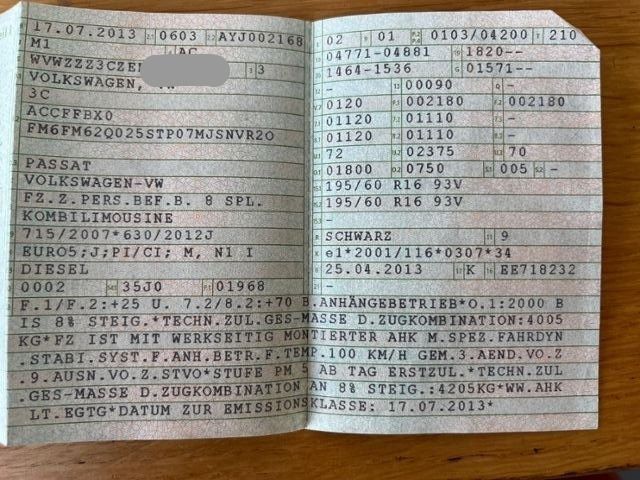 17.07.2013 0603 AYJ002168
M1 AC
WVWZZZ3CZE 3
VOLKSWAGEN,
3C
ACCFFBX0
FM6FM62Q025STP07MJSNVR2O
-
PASSAT
VOLKSWAGEN-VW
FZ.Z.PERS.BEF.B. 8 SPL.
KOMBILIMOUSINE
715/2007*630/2012J
EURO5;J;PI/CI; M, N1 I
DIESEL
0002 35J0 01968
02 01 0103/04200 210
04771-04881 1820--
1464-1536 01571--
- 00090 -
0120 002180 002180
01120 01110 -
01120 01110 -
72 02375 70
01800 0750 005 -
195/60 R16 93V
195/60 R16 93V
-
SCHWARZ 9
e1*2001/116*0307*34
25.04.2013 K EE718232
-
F.1/F.2:+25 U. 7.2/8.2:+70 B.ANHÄNGEBETRIEB*O.1:2000 B
IS 8% STEIG.*TECHN.ZUL.GES-MASSE D.ZUGKOMBINATION:4005
KG*FZ IST MIT WERKSEITIG MONTIERTER AHK M.SPEZ.FAHRDYN
.STABI.SYST.F.ANH.BETR.F.TEMP.100 KM/H GEM.3.AEND.VO.Z
.9.AUSN.VO.Z.STVO*STUFE PM 5 AB TAG ERSTZUL.*TECHN.ZUL
.GES-MASSE D.ZUGKOMBINATION AN 8% STEIG.:4205KG*WW.AHK
LT.EGTG*DATUM ZUR EMISSIONSKLASSE: 17.07.2013*